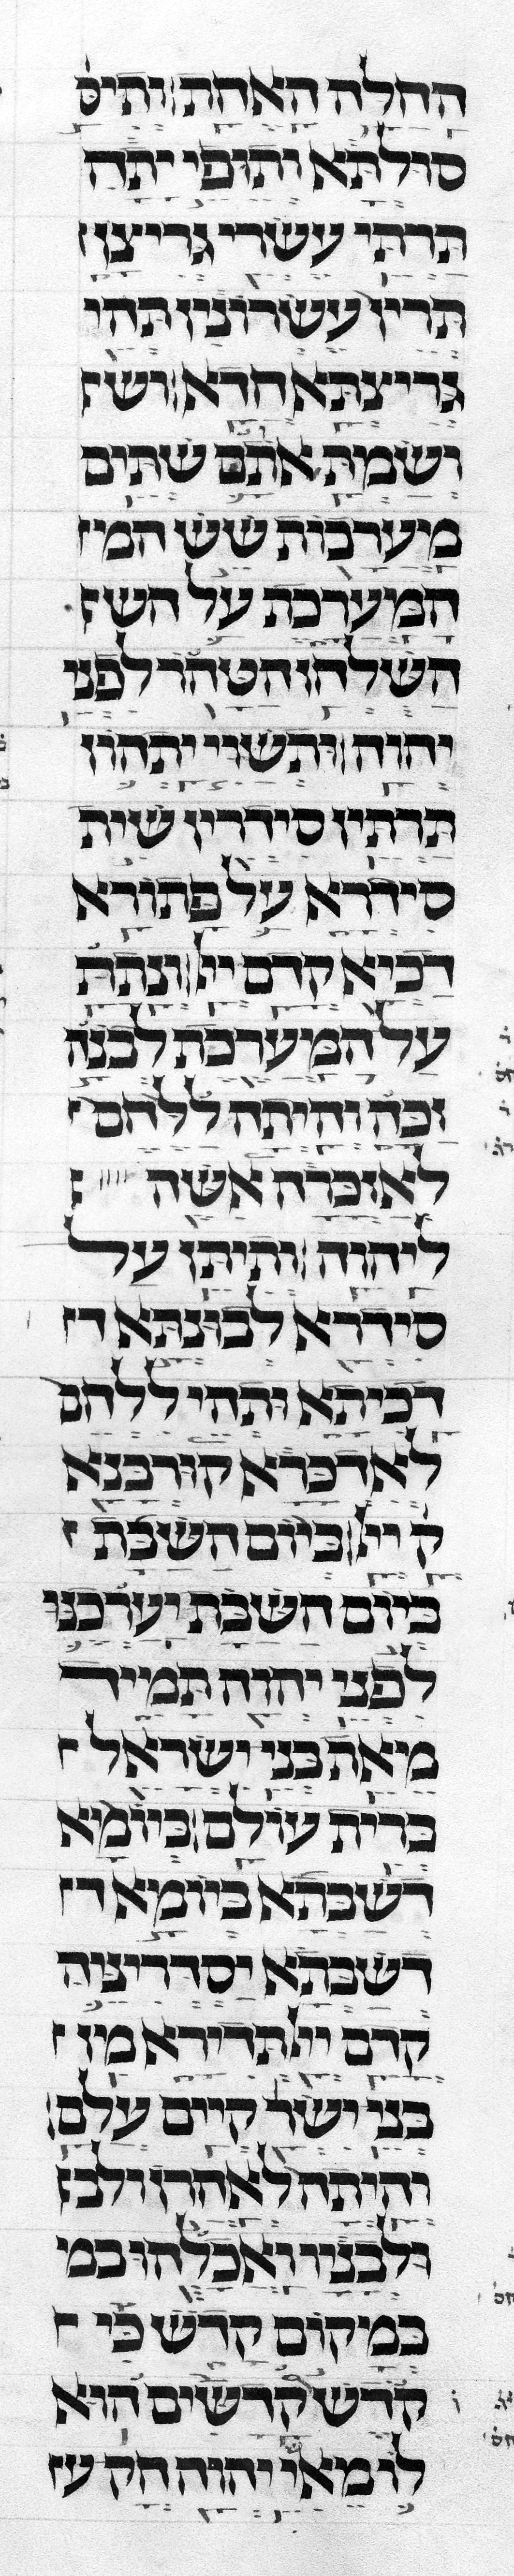 החלה האחת׃ ותיס
סולתא ותופי יתה
תרתי עשרי גריצן
תרין עשרונין תהי
גריצתא חדא׃ וש
ושמת אתם שתים
מערכות שש המ
המערכת על הש
השלחן הטהר לפני
יהוה׃ ותשוי יתהון
תרתין סידרין שית
סידרא על פתורא
דכיא קדם ייי׃ ונתת
על המערכת לבנה
זכה והיתה ללחם
לאזכרה אשה
ליהוה׃ ותיתן על
סידרא לבונתא ד
דכיתא ותהי ללחם
לאדכרא קורבנא
ק ייי׃ ביום השבת
ביום השבת יערכנו
לפני יהוה תמיד
מאת בני ישראל
ברית עולם׃ ביומא
דשבתא ביומא ד
דשבתא יסדריניה
קדם ייי תדירא מן
בני ישר קיים עלם׃
והיתה לאהרן ולב
ולבניו ואכלהו במ
במקום קדש כי
קדש קדשים הוא
לו מאשי יהוה חק ע